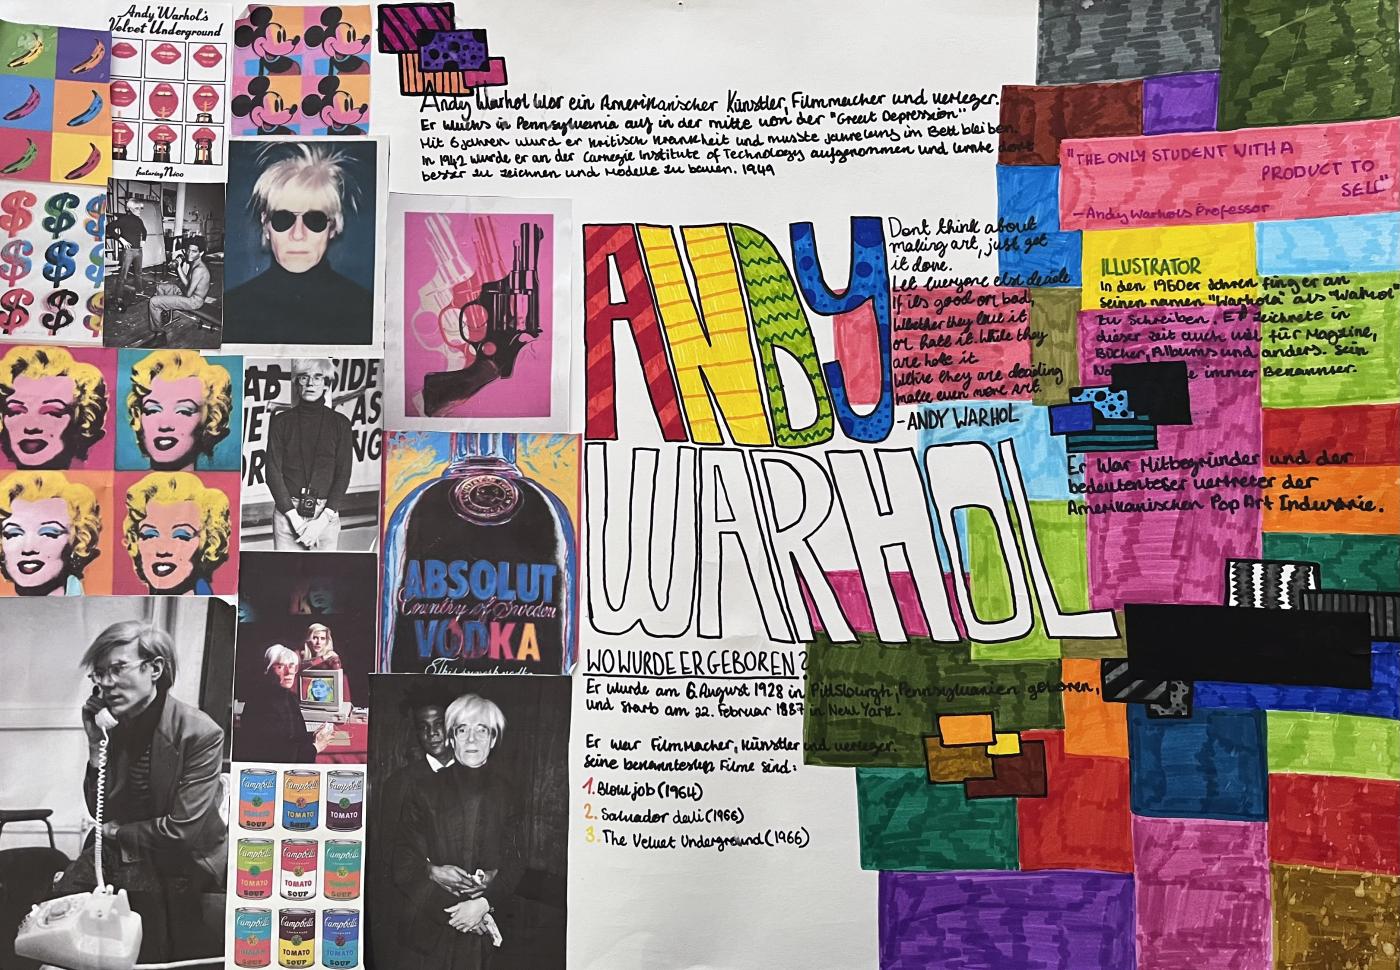 Andy Warhol's
Velvet Underground
featuring Nico
Andy Warhol War ein Amerikanischer Künstler, Filmmacher und verleger.
Er wuchs in Pennsylvania auf in der mitte von der "Great Depression".
Mit 6 jahren wurd er kritisch krankheit und musste jahrelang im Bett bleiben.
In 1942 wurde er an der Carnegie Institute of Technology aufgenommen und lernte dort
besser zu zeichnen und Modelle zu bauen. 1949
"THE ONLY STUDENT WITH A
PRODUCT TO
SELL"
-Andy Warhols Professor
ANDY
WARHOL
Dont think about
making art, just get
it done.
Let everyone else decide
if its good or bad,
whether they love it
or hate it. While they
are hate it
While they are deciding
make even more art.
-ANDY WARHOL
ILLUSTRATOR
In den 1960er Jahren fing er an
seinen namen "Warhola" als "Warhol"
zu schreiben. Er zeichnete in
dieser zeit auch viel für Magzine,
Bücher, Albums und anders. Sein
immer Benannser.
Er War Mitbegründer und der
bedeutenteser vertreter der
Amerikanischen Pop Art Industrie.
WO WURDE ER GEBOREN?
Er wurde am 6. August 1928 in Pittsburgh, Pennsylvanien geboren,
und starb am 22. Februar 1987 in New York.
Er war Filmmacher, Künstler und verleger.
Seine benanntestes Filme sind:
1. Blow job (1964)
2. Salvador dali (1966)
3. The Velvet Underground (1966)
ABSOLUT
Country of Sweden
VODKA
Campbell's Campbell's Campbell's
TOMATO TOMATO TOMATO
SOUP SOUP SOUP
Campbell's Campbell's Campbell's
TOMATO TOMATO TOMATO
SOUP SOUP SOUP
Campbell's Campbell's Campbell's
TOMATO TOMATO TOMATO
SOUP SOUP SOUP